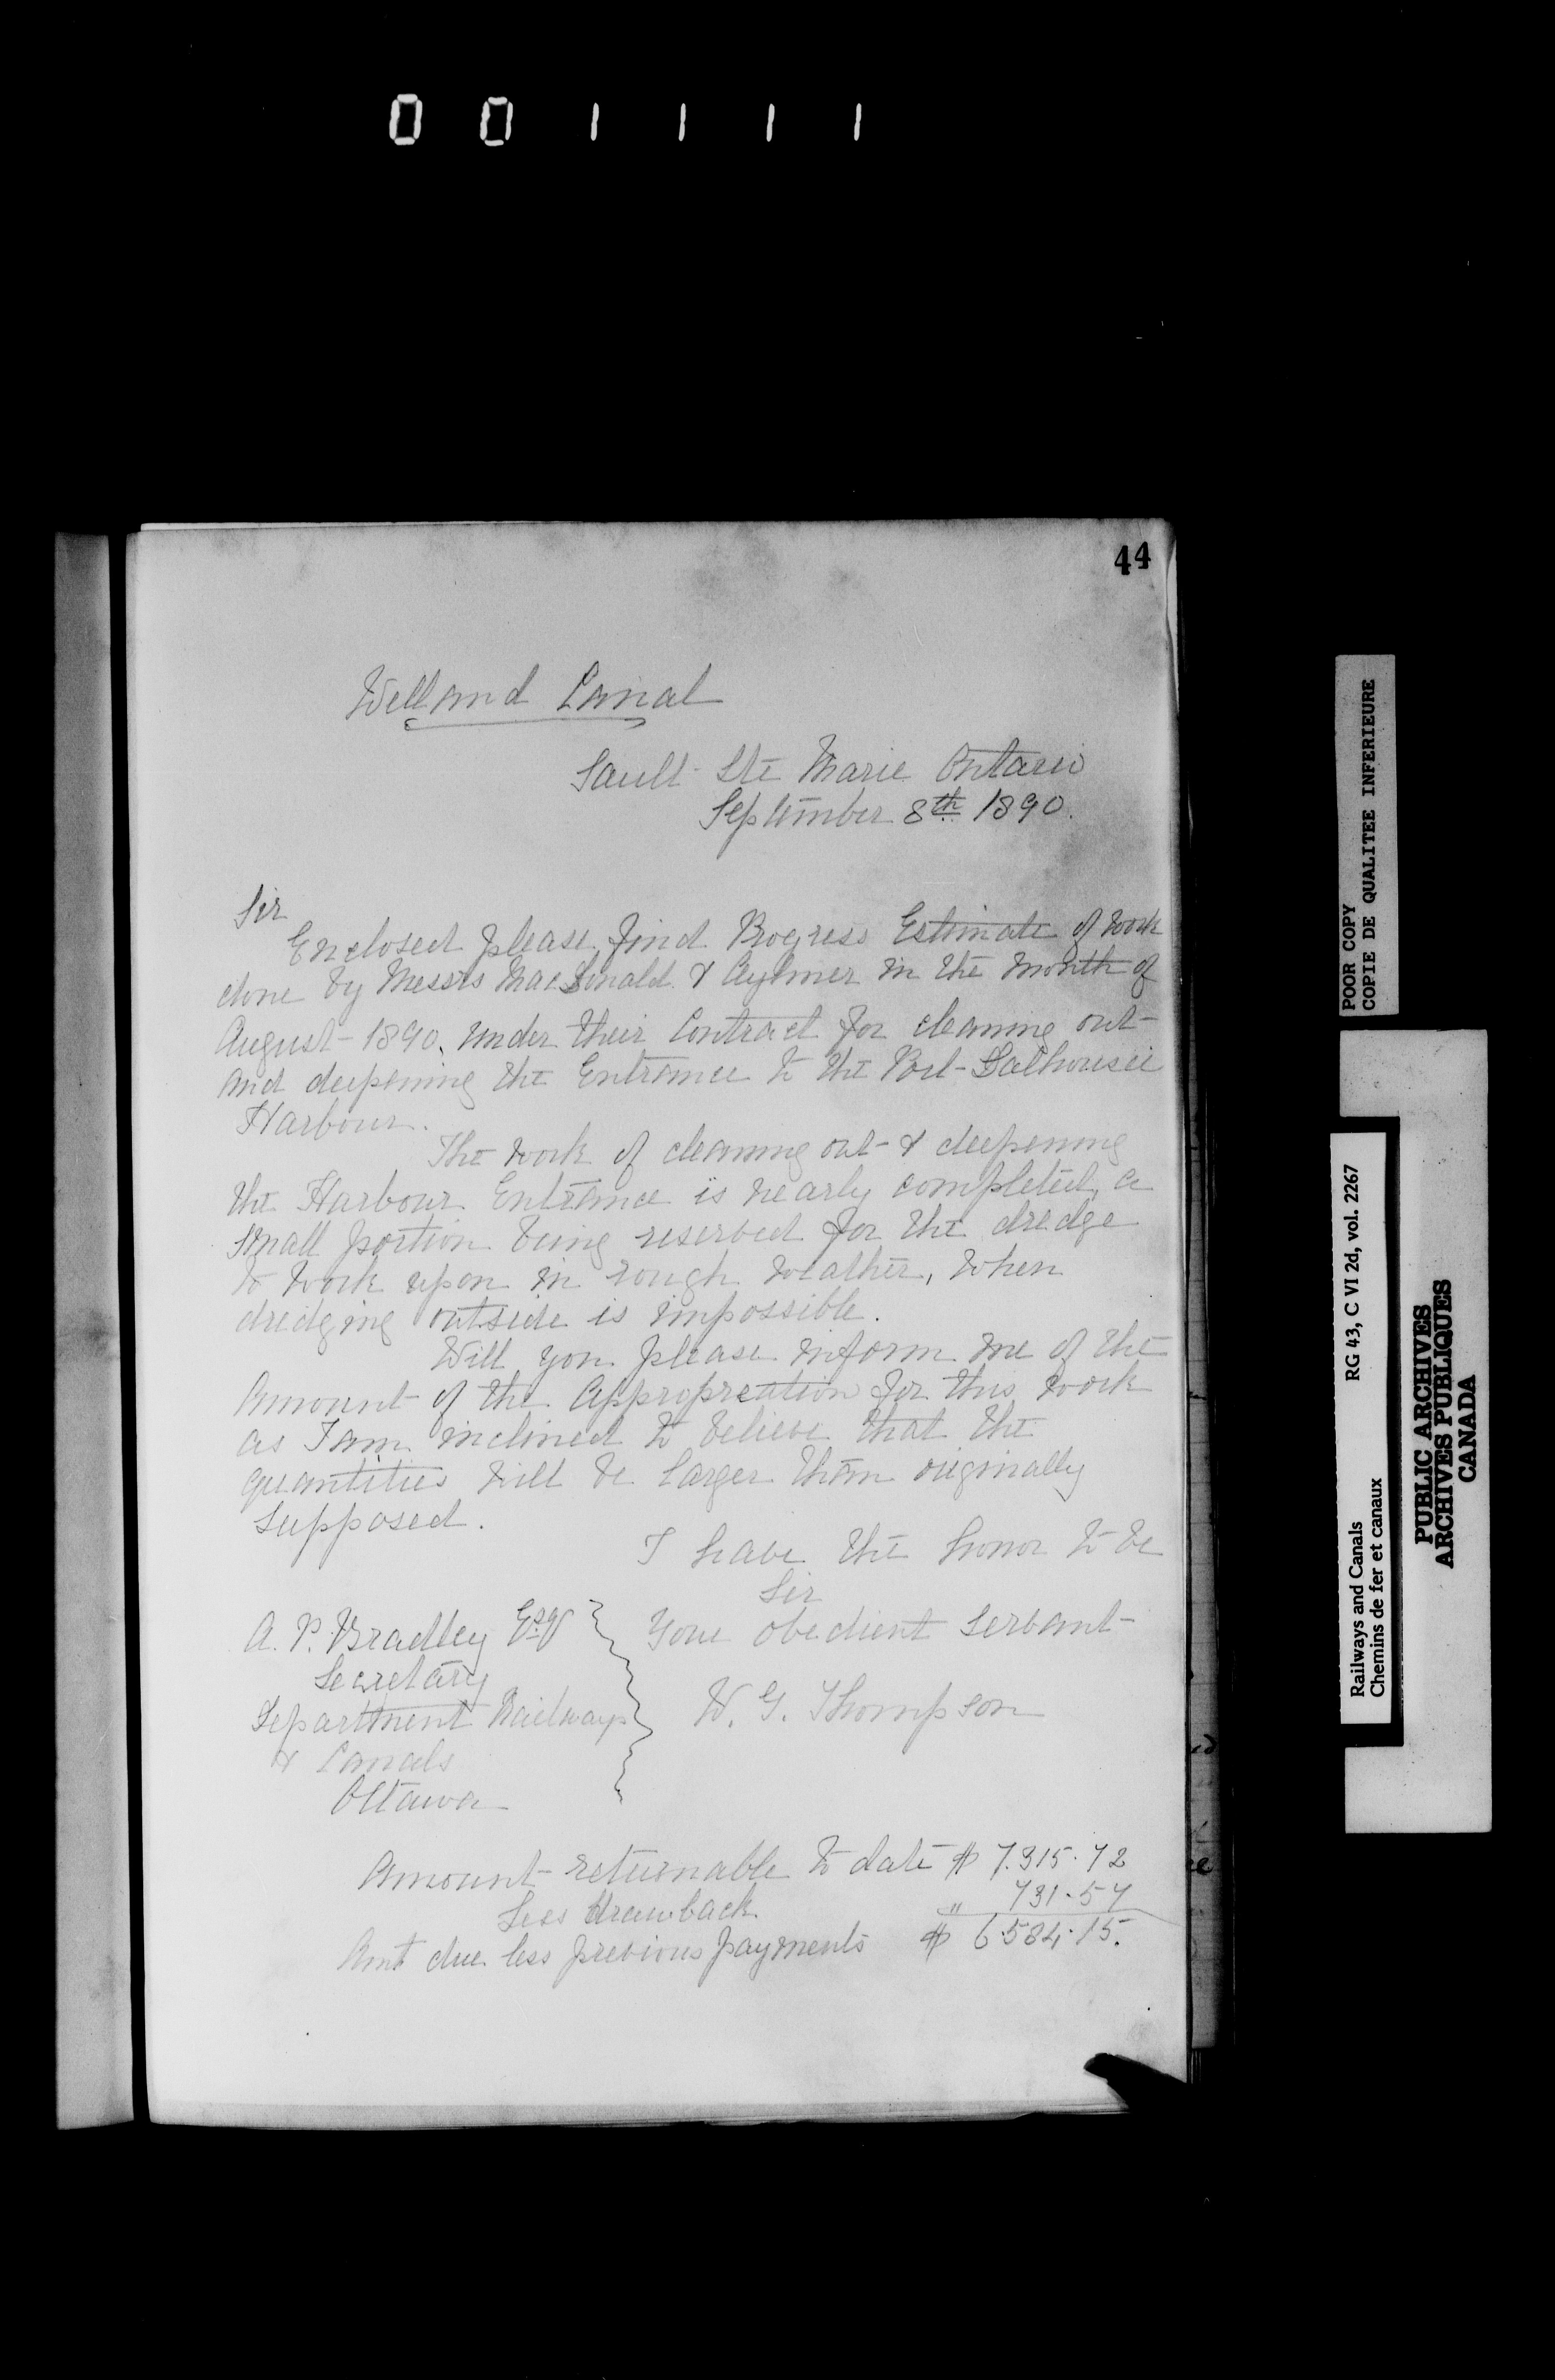 001111
44
Welland Canal
Sault Ste Marie Ontario
September 8th 1890.
Sir
Enclosed please find Progress Estimate of work
done by Messrs MacDonald & Aylmer in the month of
August 1890, under their Contract for cleaning out
and deepening the Entrance to the Port Dalhousie
Harbour.
The work of cleaning out & deepening
the Harbour Entrance is nearly completed, a
small portion being reserved for the dredge
to work upon in rough weather, when
dredging outside is impossible.
Will you please inform me of the
Amount of the Appropriation for this work
as I am inclined to believe that the
quantities will be larger than originally
supposed.
I have the honor to be
Sir
Your obedient servant
W. G. Thompson
A. P. Bradley Esqr
Secretary
Department Railways
& Canals
Ottawa
Amount returnable to date $ 7.315.72
Less drawback " 731.57
Amt due less previous payments $ 6.584.15.
POOR COPY
COPIE DE QUALITEE INFERIEURE
Railways and Canals RG 43, C VI 2d, vol. 2267
Chemins de fer et canaux
PUBLIC ARCHIVES
ARCHIVES PUBLIQUES
CANADA